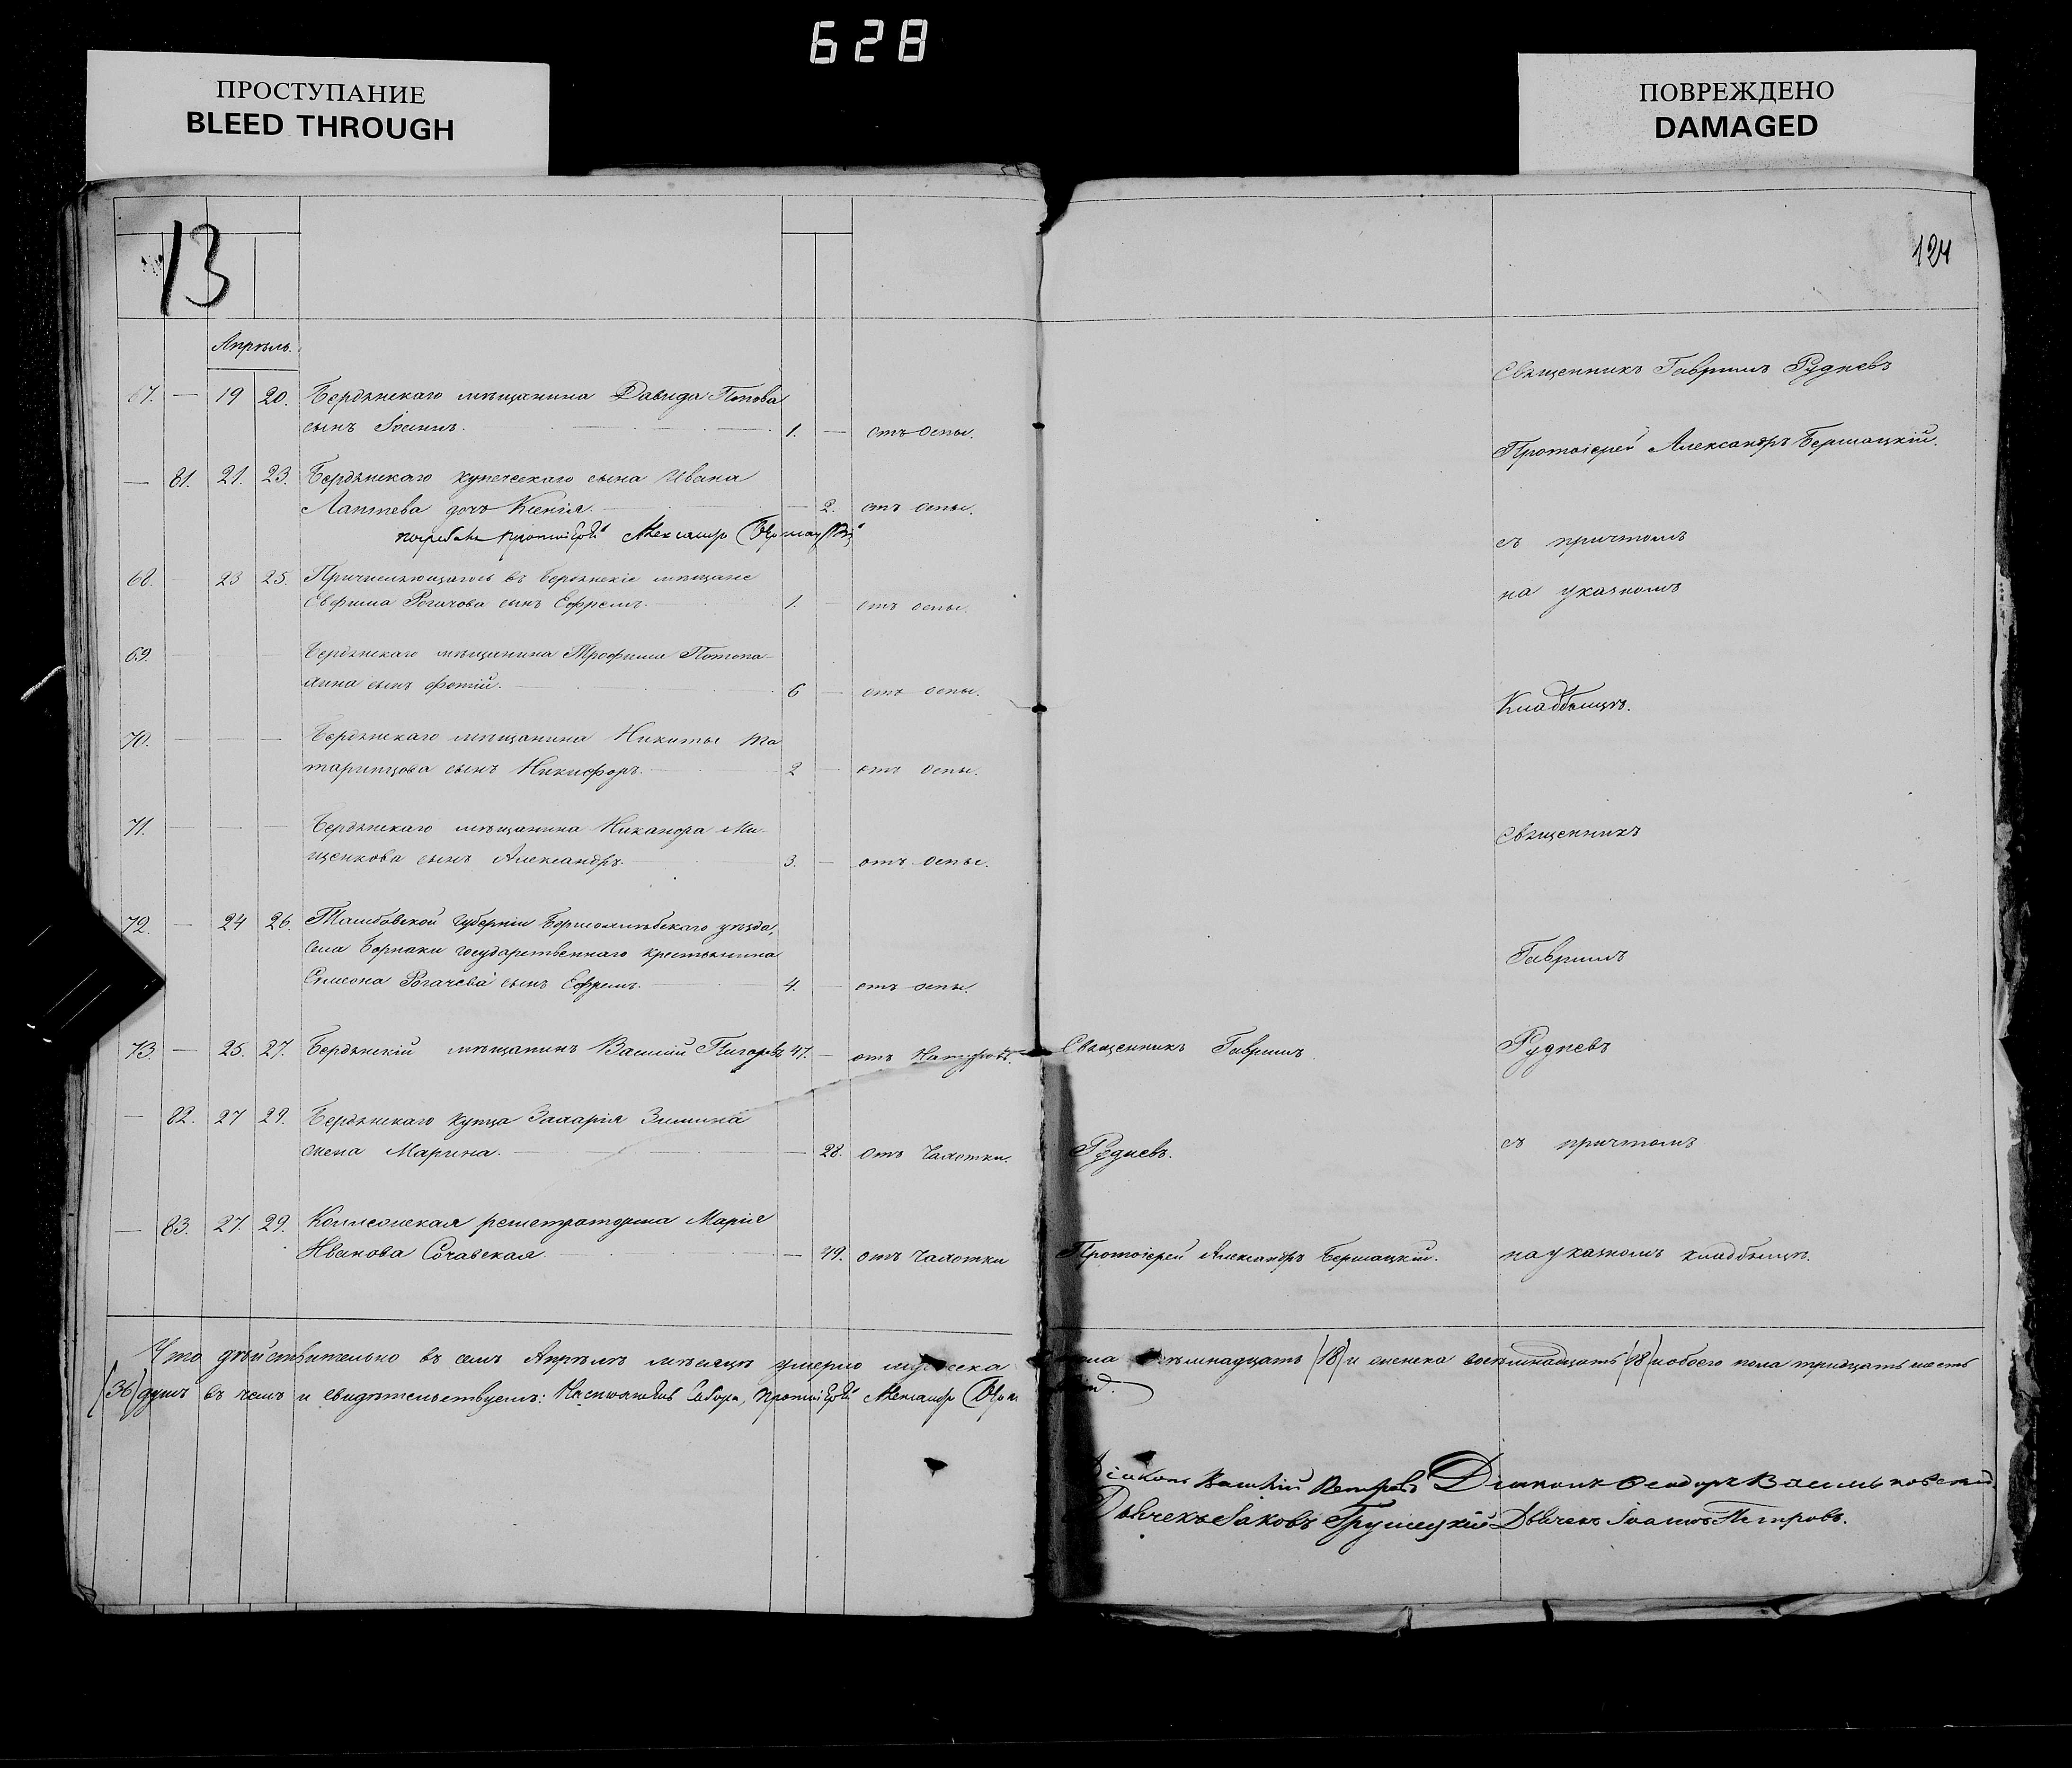 628
ПРОСТУПАНИЕ
BLEED THROUGH
ПОВРЕЖДЕНО
DAMAGED
13
124
Апрѣль.
67. — 19 20. Бердянскаго мѣщанина Давида Попова
сынъ Іосифъ. 1. — отъ оспы.
— 81. 21. 23. Бердянскаго купеческаго сына Ивана
Лаптева дочь Ксенія. — 2. отъ оспы.
Протоіерей Александръ
68. 23 25. Причисляющагося въ Бердянскіе мѣщане
Евфима Рогачова сынъ Ефремъ. 1. — отъ оспы.
69. — — — Бердянскаго мѣщанина Трофима
сынъ Фотій. 6 — отъ оспы.
70. — — — Бердянскаго мѣщанина Никиты Та
таринцова сынъ Никифоръ. 2 — отъ оспы.
71. — — — Бердянскаго мѣщанина Никанора Ми-
щенкова сынъ Александръ. 3. — отъ оспы.
72. — 24 26. Тамбовской губерніи уѣзда,
села государственнаго крестьянина
Симеона Рогачева сынъ Ефремъ. 4. — отъ оспы.
73. — 25. 27. Бердянскій мѣщанинъ Василій 47. — отъ
— 82. 27 29. Бердянскаго купца Захарія Зимина
жена Марина. — 28. отъ Чахотки.
— 83. 27. 29. Коллежская регистраторша Марія
Иванова — 49. отъ Чахотки
Священникъ Гавріилъ Рудневъ
Протоіерей Александръ
съ причтомъ
на указномъ
Кладбищѣ.
Священникъ
Гавріилъ
Священникъ Гавріилъ Рудневъ
Рудневъ. съ причтомъ
Протоіерей Александръ на указномъ кладбищѣ.
Что дѣйствительно въ семъ Апрѣлѣ мѣсяцѣ умерло мужеска пола восемнадцать (18) и женска восемнадцать (18) и обоего пола тридцать шесть
(36) душъ въ чемъ и свидѣтельствуемъ: Собора, Протоіерей Александръ
Діаконъ Василій Петровъ Діаконъ Феодоръ
Дьячекъ Іаковъ Грушецкій Дьячекъ Іоаннъ Петровъ.